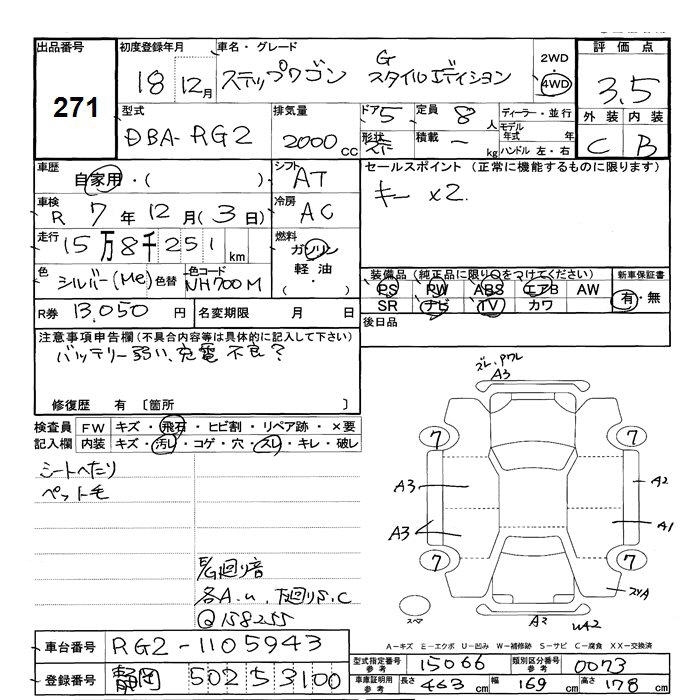 出品番号
271
初度登録年月
18 12月
車名・グレード
ステップワゴン G スタイルエディション
2WD
4WD
評価点
3.5
外装 内装
C B
型式
DBA-RG2
排気量
2000cc
ドア 5
形状
定員 8人
積載 ー kg
ディーラー・並行
モデル年式 年
ハンドル 左・右
車歴
自家用・( )
シフト
AT
セールスポイント(正常に機能するものに限ります)
キー x2.
車検
R 7年 12月(3日)
冷房
AC
走行
15万8千251km
燃料
ガソリン
軽油
(・)
色
シルバー(Me) 色替
色コード
NH700M
装備品(純正品に限り○をつけてください)
PS PW ABS エアB AW
SR ナビ TV カワ
新車保証書
有・無
R券 13,050円
名変期限 月 日
後日品
注意事項申告欄(不具合内容等は具体的に記入して下さい)
バッテリー弱い、充電不良?
修復歴 有 〔箇所 〕
検査員記入欄
FW キズ・飛石・ヒビ割・リペア跡・×要
内装 キズ・汚レ・コゲ・穴・スレ・キレ・破レ
シートへたり
ペット毛
E/G廻り音
各A.U、下廻りS.C
Q158255
ズレ、PワレA3
7 7
A3 A2
A3 A1
7 7
スペ
A2 WA2
A-キズ E-エクボ U-凹み W-補修跡 S-サビ C-腐食 XX-交換済
車台番号 RG2-1105943
登録番号 静岡 502 5 3100
型式指定番号参考 15066
類別区分番号参考 0073
車庫証明用参考 長さ 463cm 幅 169cm 高さ 178cm